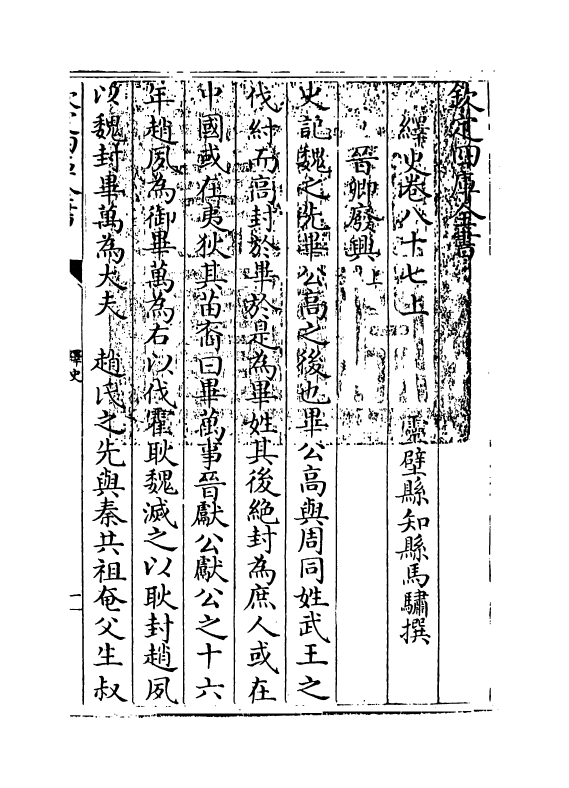 欽定四庫全書
繹史卷八十七上 靈壁縣知縣馬驌撰
晉卿廢興上
史記魏之先畢公高之後也畢公高與周同姓武王之
伐紂而高封於畢於是為畢姓其後絶封為庶人或在
中國或在夷狄其苗裔曰畢萬事晉獻公獻公之十六
年趙夙為御畢萬為右以伐霍耿魏滅之以耿封趙夙
以魏封畢萬為大夫 趙氏之先與秦共祖奄父生叔
欽定四庫全書
繹史
一